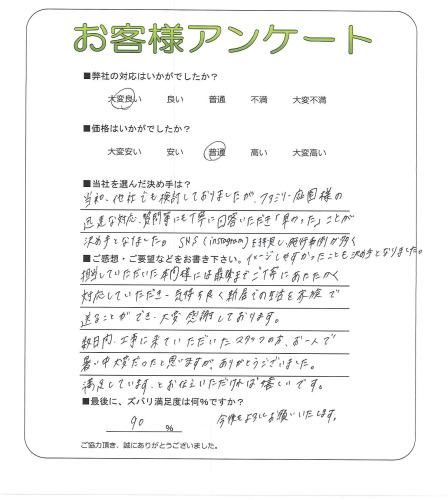 お客様アンケート
■弊社の対応はいかがでしたか?
大変良い 良い 普通 不満 大変不満
■価格はいかがでしたか?
大変安い 安い 普通 高い 大変高い
■当社を選んだ決め手は?
当初、他社でも検討しておりましたが、ファミリー庭園様の
迅速な対応、質問等にも丁寧に回答いただき「早かった」ことが
決め手となりました。SNS(instagram)を拝見し、施行事例が多く
イメージしやすかったことも決め手となりました。
■ご感想・ご要望などをお書き下さい。
担当していただいた本岡様には最後までご丁寧にあたたかく
対応していただき、気持ち良く新居での生活を家族で
送ることができ、大変感謝しております。
数日内、工事に来ていただいたスタッフの方、お一人で
暑い中大変だったと思いますが、ありがとうございました。
満足しています、とお伝えいただければ嬉しいです。
■最後に、ズバリ満足度は何%ですか?
90 %
今後ともよろしくお願いいたします。
ご協力頂き、誠にありがとうございました。